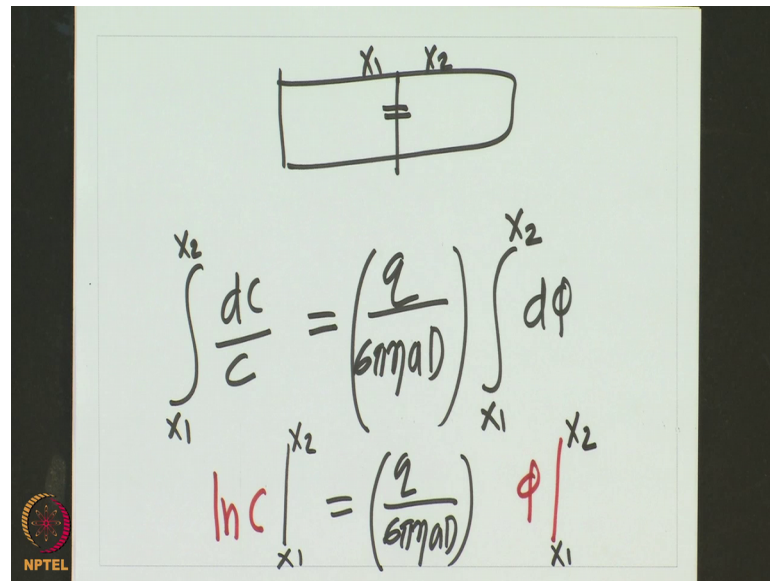 X1 X2
∫_{X1}^{X2} dC/C = (q/6πηaD) ∫_{X1}^{X2} dφ
ln C |_{X1}^{X2} = (q/6πηaD) φ |_{X1}^{X2}
NPTEL